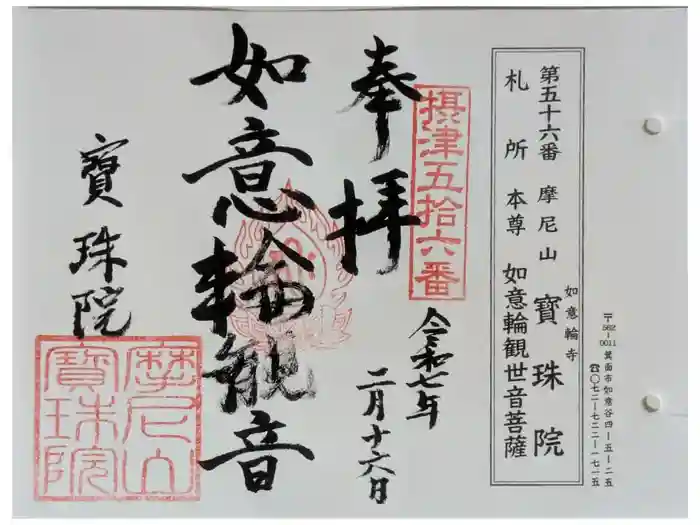 〒562-0011 箕面市如意谷四ー五ー二五
☎〇七二ー七二二ー一七一五
第五十六番 摩尼山 如意輪寺 寶珠院
札所本尊 如意輪観世音菩薩
摂津五拾六番
奉拝
令和七年
二月十六日
如意輪観音
寶珠院
摩尼山
寶珠院